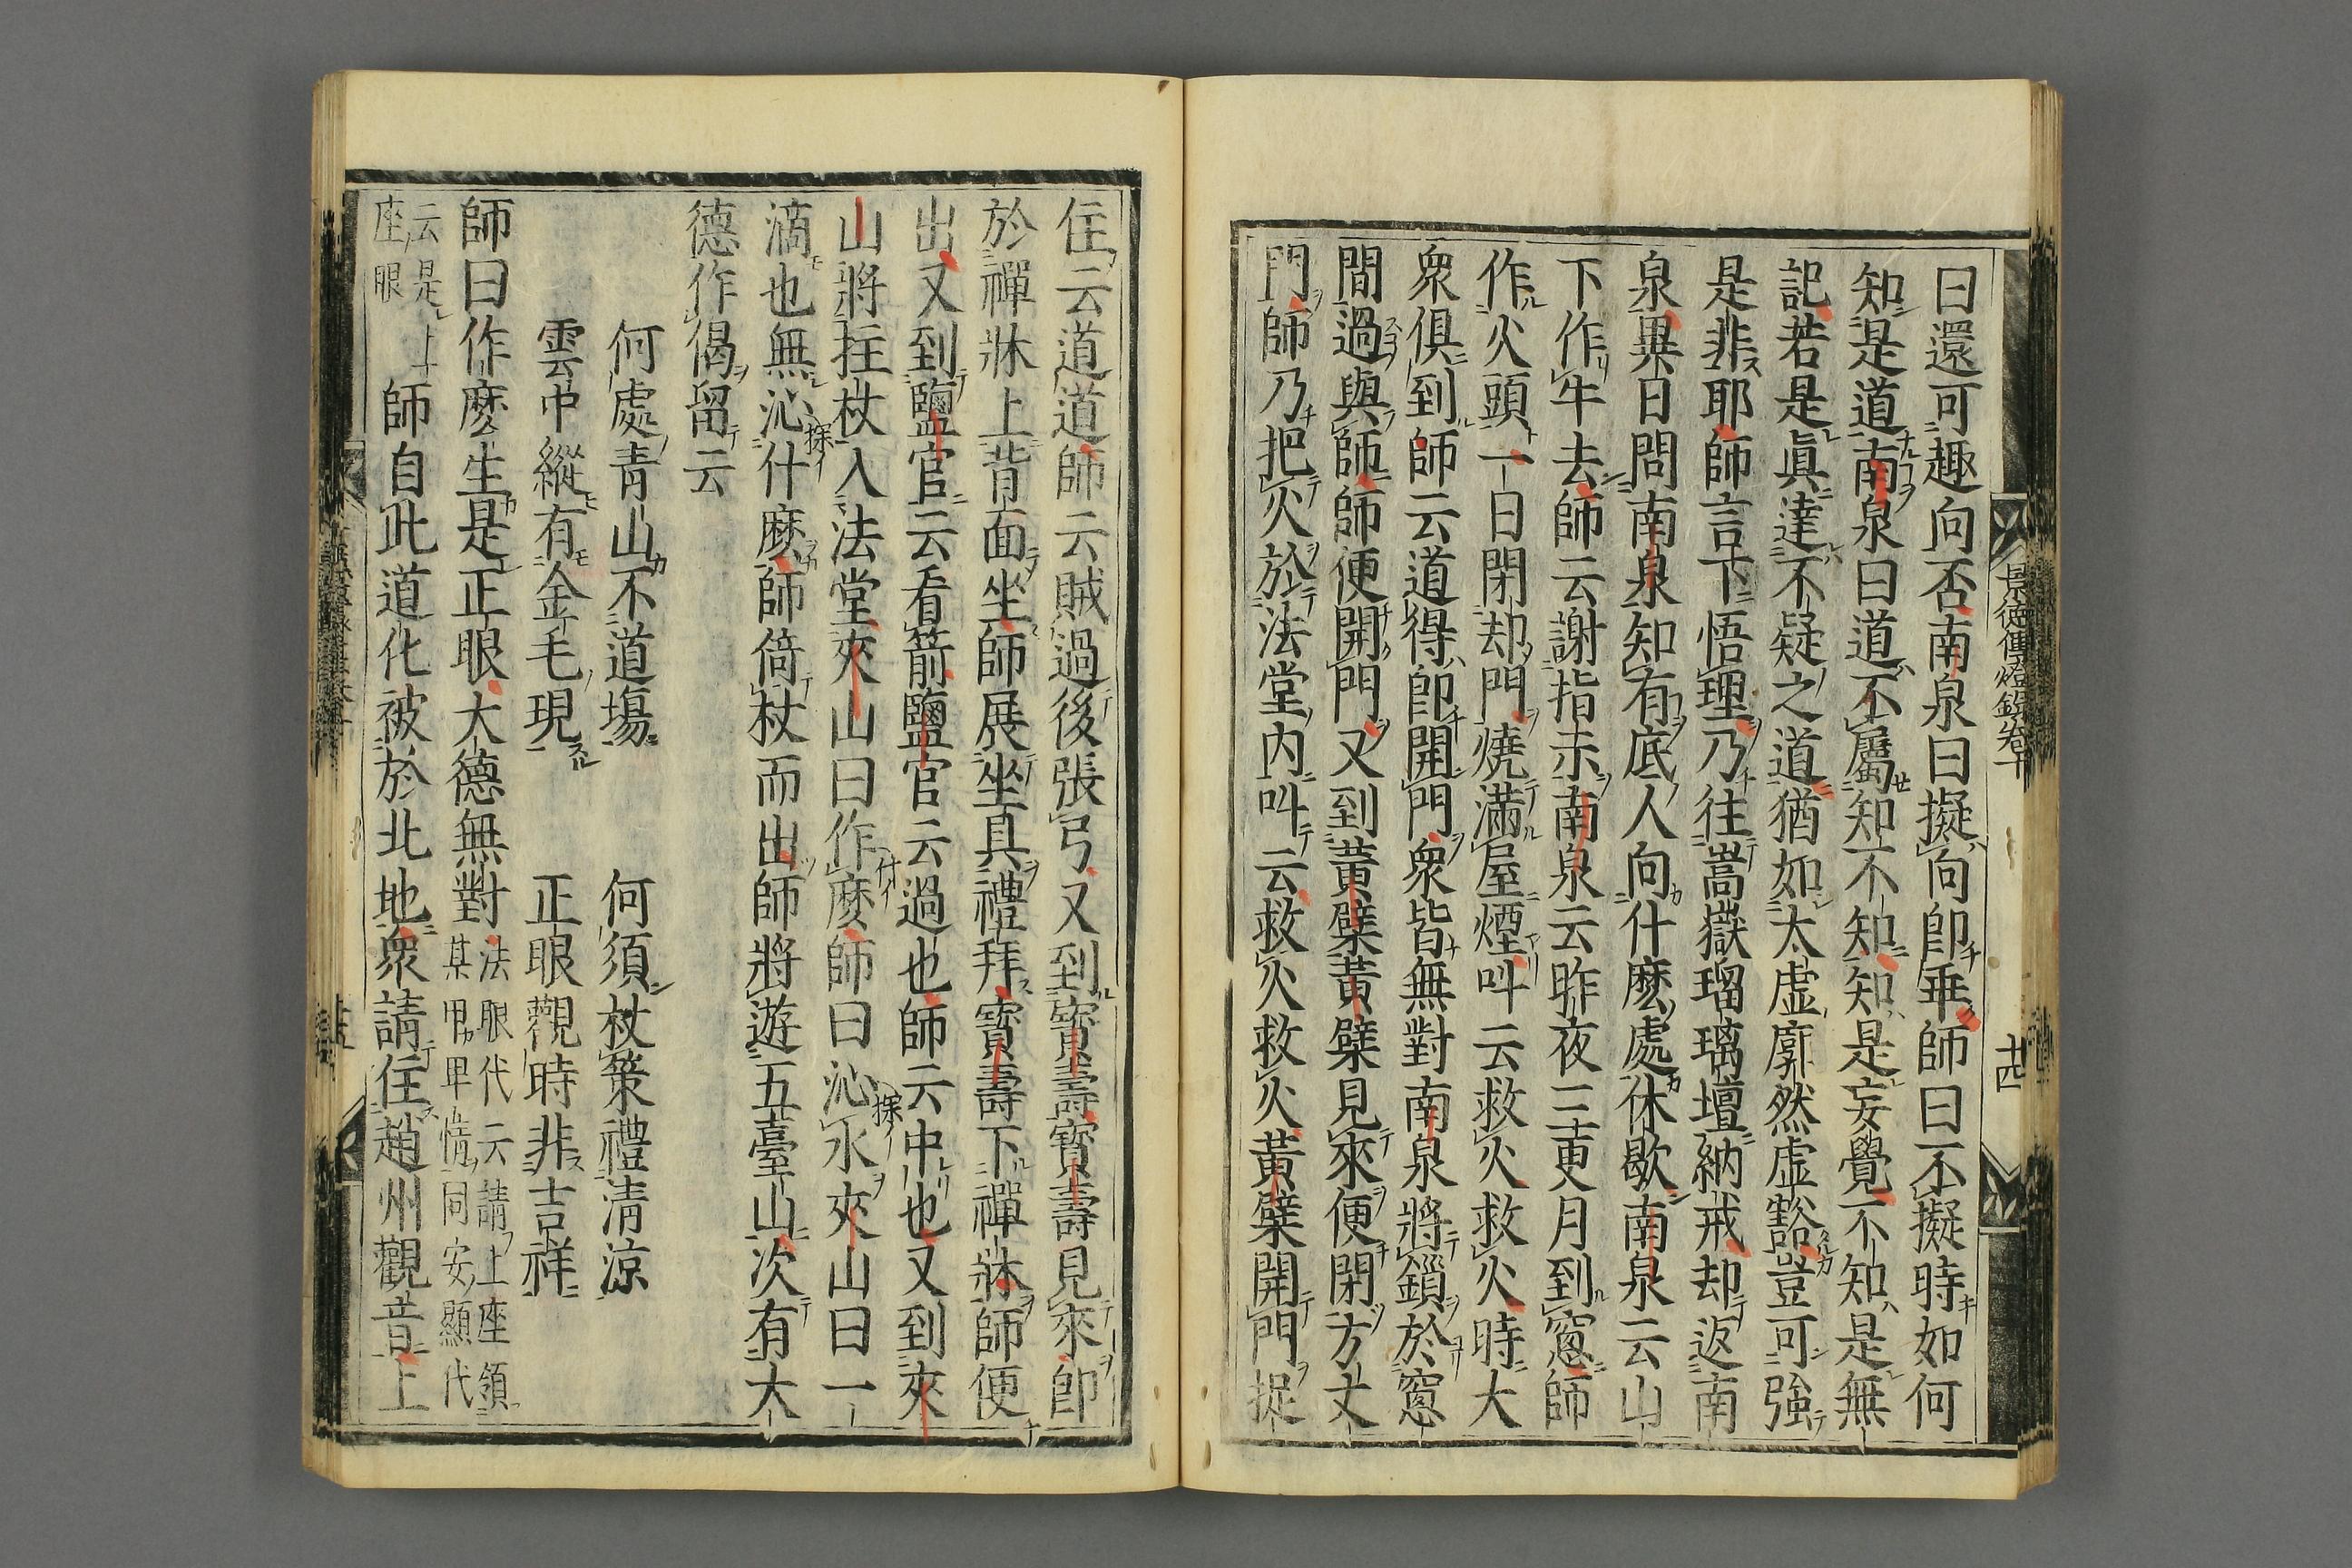 曰還可趣向否南泉曰擬向卽乖師曰不擬時如何
知是道南泉曰道不屬知不知知是妄覺不知是無
記若是眞達不疑之道猶如太虛廓然虛豁豈可強
是非耶師言下悟理乃往嵩嶽瑠璃壇納戒却返南
泉異日問南泉知有底人向什麽處休歇南泉云山
下作牛去師云謝指示南泉云昨夜三更月到窓師
作火頭一日閉却門燒滿屋煙叫云救火救火時大
衆俱到師云道得卽開門衆皆無對南泉將鎖於窓
間過與師師便開門又到黃檗黃檗見來便閉方丈
門師乃把火於法堂内叫云救火救火黃檗開門捉
景德傳燈錄卷十
十四
住云道道師云賊過後張弓又到寶壽寶壽見來卽
於禪牀上背面坐師展坐具禮拜寶壽下禪牀師便
出又到鹽官云看箭鹽官云過也師云中也又到夾
山將拄杖入法堂夾山曰作麽師曰沁水夾山曰一
滴也無沁什麽師倚杖而出師將遊五臺山次有大
德作偈留云
何處青山不道場 何須杖策禮清涼
雲中縱有金毛現 正眼觀時非吉祥
師曰作麽生是正眼大德無對法眼代云請上座領
某甲卑情同安顯代
云是上
座眼
師自此道化被於北地衆請住趙州觀音上